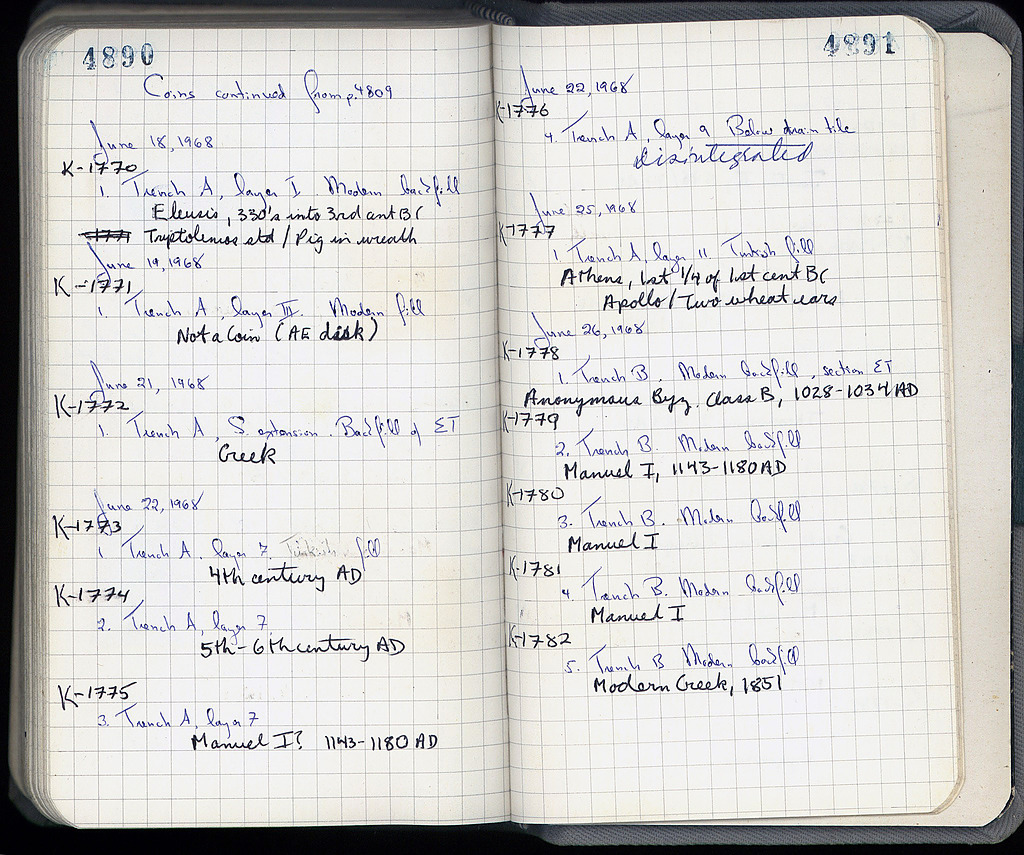 4890
Coins continued from p. 4809
June 18, 1968
K-1770
1. Trench A, layer I. Modern backfill
Eleusis, 330's into 3rd cent BC
1771 Triptolemos std / Pig in wreath
June 19, 1968
K-1771
1. Trench A, layer III. Modern fill
Not a Coin (AE disk)
June 21, 1968
K-1772
1. Trench A, S. extension. Backfill of ΣΤ
Greek
June 22, 1968
K-1773
1. Trench A. layer 7. Turkish fill
4th century AD
K-1774
2. Trench A, layer 7
5th-6th century AD
K-1775
3. Trench A, layer 7
Manuel I? 1143-1180 AD
4891
June 22, 1968
K-1776
4. Trench A, layer 9 Below drain tile
disintegrated
June 25, 1968
K-1777
1. Trench A, layer 11 Turkish fill
Athens, last 1/4 of 1st cent BC
Apollo / Two wheat ears
June 26, 1968
K-1778
1. Trench B. Modern backfill, section ΣΤ
Anonymous Byz. Class B, 1028-1034 AD
K-1779
2. Trench B. Modern backfill
Manuel I, 1143-1180 AD
K-1780
3. Trench B. Modern backfill
Manuel I
K-1781
4. Trench B. Modern backfill
Manuel I
K-1782
5. Trench B Modern backfill
Modern Greek, 1851